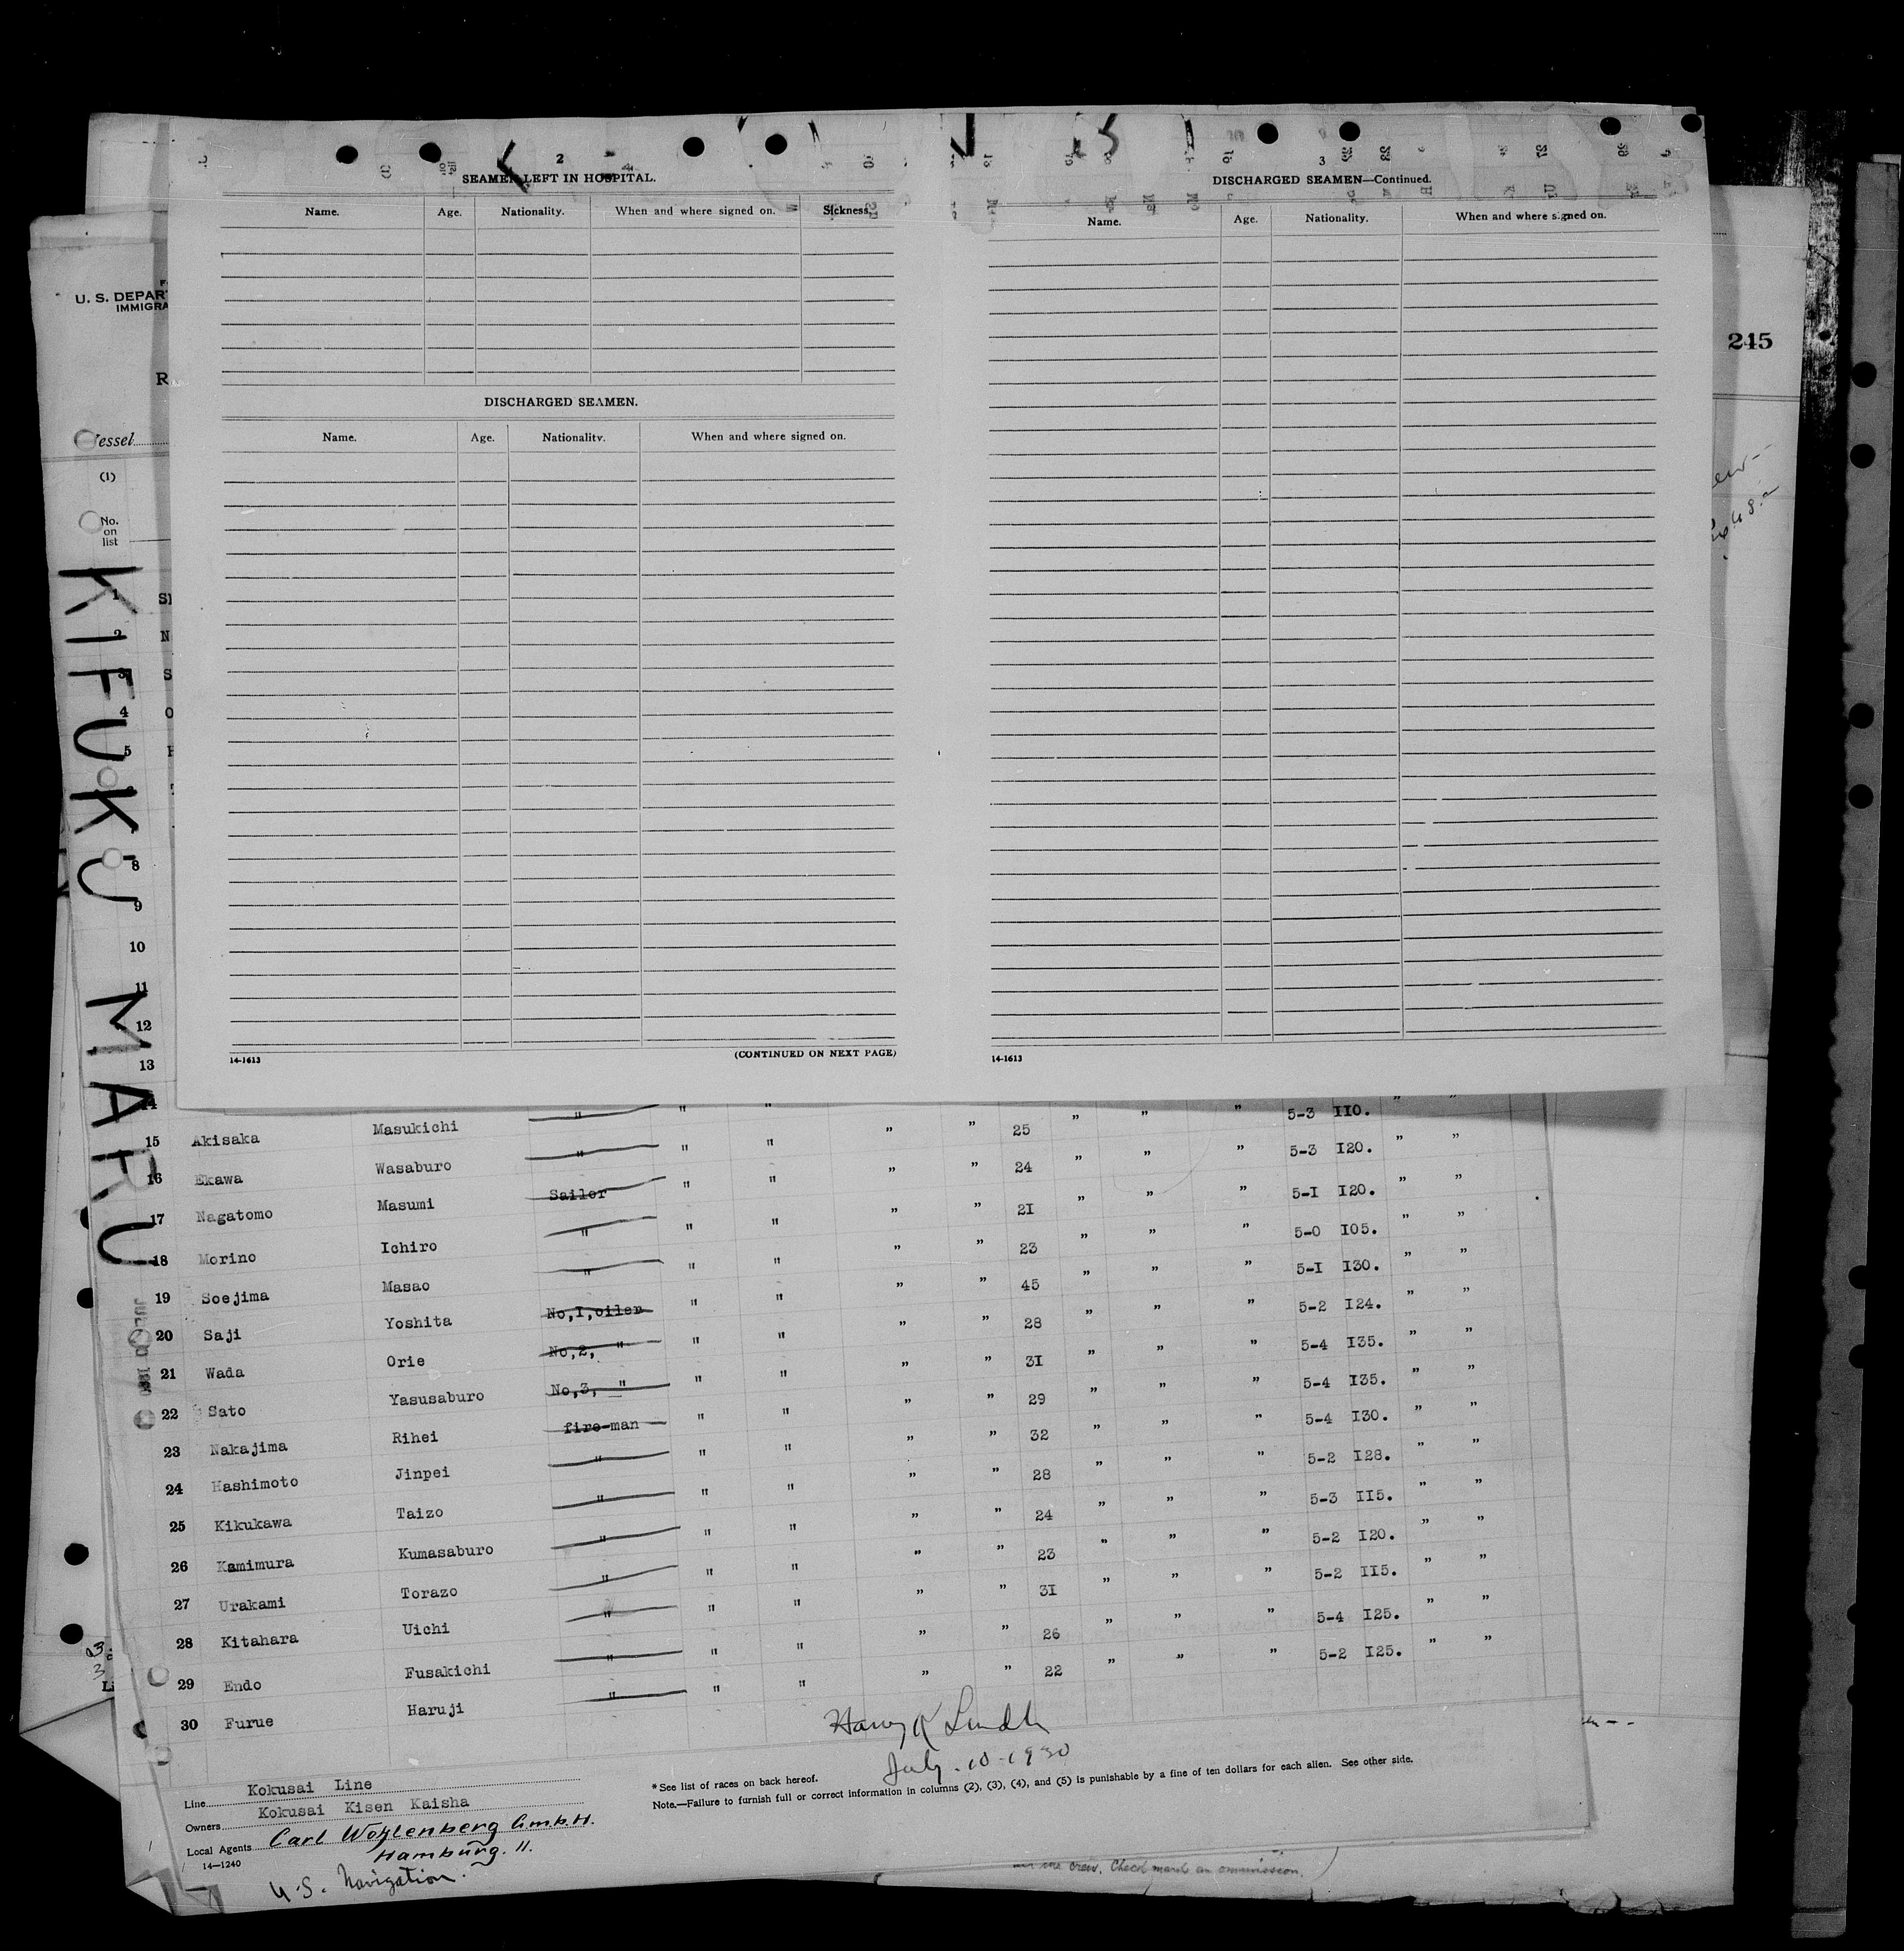 2
SEAMEN LEFT IN HOSPITAL.
Name. Age. Nationality. When and where signed on. Sickness.
DISCHARGED SEAMEN.
Name. Age. Nationality. When and where signed on.
14-1613 (CONTINUED ON NEXT PAGE)
3
DISCHARGED SEAMEN—Continued.
Name. Age. Nationality. When and where signed on.
14-1613
245
U. S. DEPAR
IMMIGRA
Vessel
(1)
No.
on
list
KIFUKU MARU
1
2
3
4
5
8
9
10
11
12
13
14
15 Akisaka Masukichi " " "
16 Ekawa Wasaburo " " " " " 25 " " " 5-3 110. " "
17 Nagatomo Masumi Sailor " " " " 24 " " " 5-3 120. " "
18 Morino Ichiro " " " " " 21 " " " 5-1 120. " "
19 Soejima Masao " " " " " 23 " " " 5-0 105. " "
20 Saji Yoshita No,1,oiler " " " " 45 " " " 5-1 130. " "
21 Wada Orie No,2, " " " " " 28 " " " 5-2 124. " "
22 Sato Yasusaburo No,3, " " " " " 31 " " " 5-4 135. " "
23 Nakajima Rihei fire-man " " " " 29 " " " 5-4 135. " "
24 Hashimoto Jinpei " " " " " 32 " " " 5-4 130. " "
25 Kikukawa Taizo " " " " " 28 " " " 5-2 128. " "
26 Kamimura Kumasaburo " " " " " 24 " " " 5-3 115. " "
27 Urakami Torazo " " " " " 23 " " " 5-2 120. " "
28 Kitahara Uichi " " " " " 31 " " " 5-2 115. " "
29 Endo Fusakichi " " " " " 26 " " " 5-4 125. " "
30 Furue Haruji " " " " " 22 " " " 5-2 125. " "
July 10-1930
Line Kokusai Line
Owners Kokusai Kisen Kaisha
Local Agents Carl Wohlenberg G.m.b.H.
Hamburg. 11.
14—1240
U.S. Navigation.
*See list of races on back hereof.
Note.—Failure to furnish full or correct information in columns (2), (3), (4), and (5) is punishable by a fine of ten dollars for each alien. See other side.
crew. Check mark an ommission.